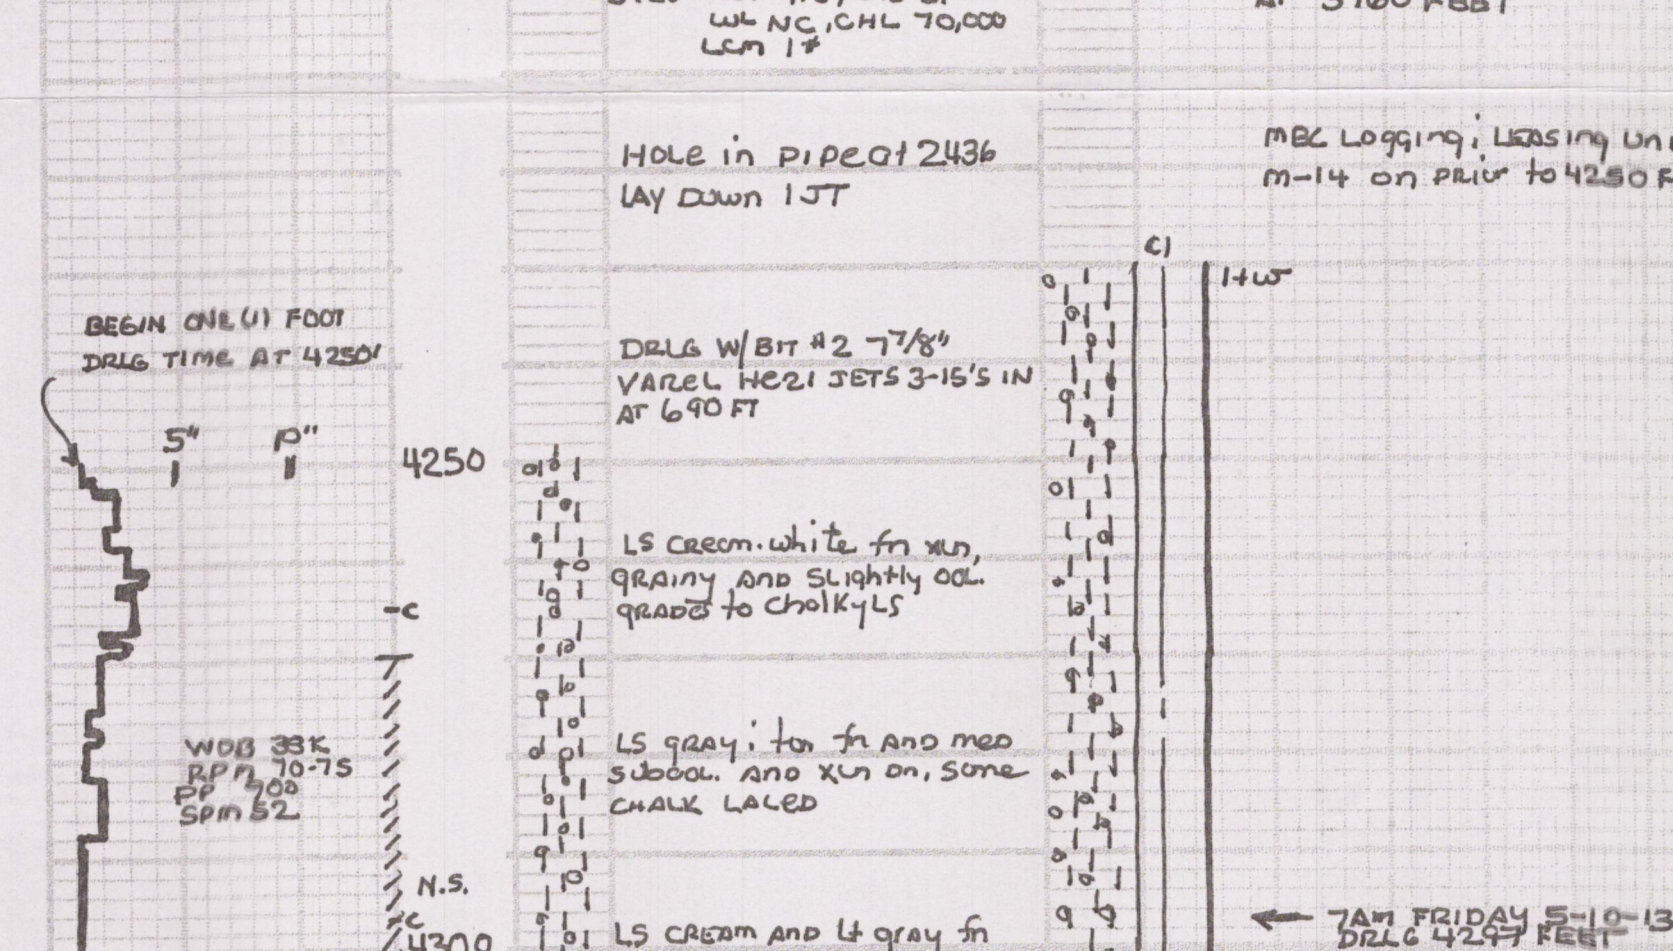 WL NC, CHL 70,000
LCM 1#
HOLE in PIPE at 2436
LAY DOWN 1 JT
MBC Logging; LEASING
M-14 on PRIOR to 4250 F
C1
1+w
BEGIN ONE (1) FOOT
DRLG TIME AT 4250'
DRLG W/BIT #2 7 7/8"
VAREL HE21 JETS 3-15'S IN
AT 690 FT
5" P"
4250
LS CREAM. white fn xln,
GRAINY AND SLightly OOL.
GRADES to ChalKy LS
-C
WOB 33K
RPM 70-75
PP 700
SPM 52
LS GRAY; tan fn AND MED
SUBOOL. AND XLN ON, SOME
CHALK LACED
N.S.
C
4300
LS CREAM AND Lt GRAY fn
← 7AM FRIDAY 5-10-13
DRLG 4297 FEET